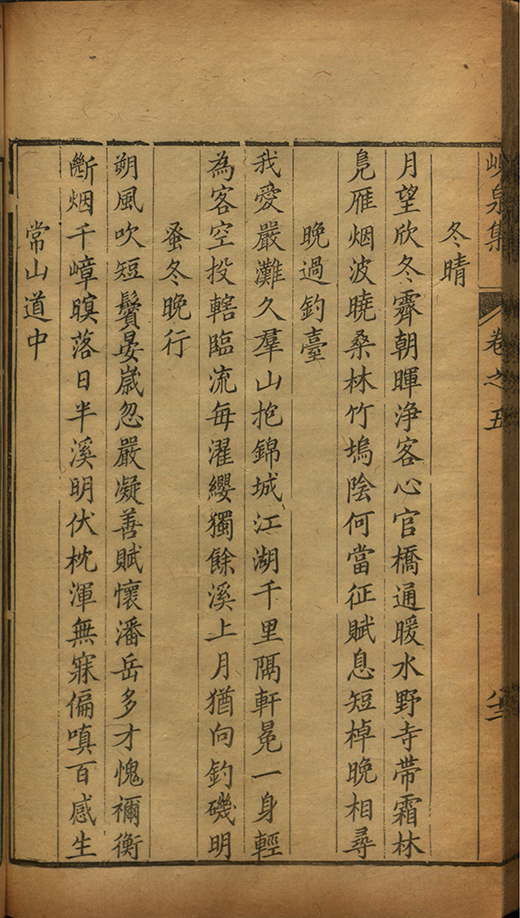 峴泉集 卷之五
冬晴
月望欣冬霽朝暉浄客心官橋通暖水野寺带霜林
鳬雁烟波曉桑林竹塢陰何當征賦息短棹晚相尋
晚過釣臺
我愛嚴灘久羣山抱錦城江湖千里隔軒冕一身輕
為客空投轄臨流毎濯纓獨餘溪上月猶向釣磯明
蚤冬晚行
朔風吹短鬢晏歲忽嚴凝善賦懷潘岳多才愧禰衡
斷烟千嶂暝落日半溪明伏枕渾無寐偏嗔百感生
常山道中